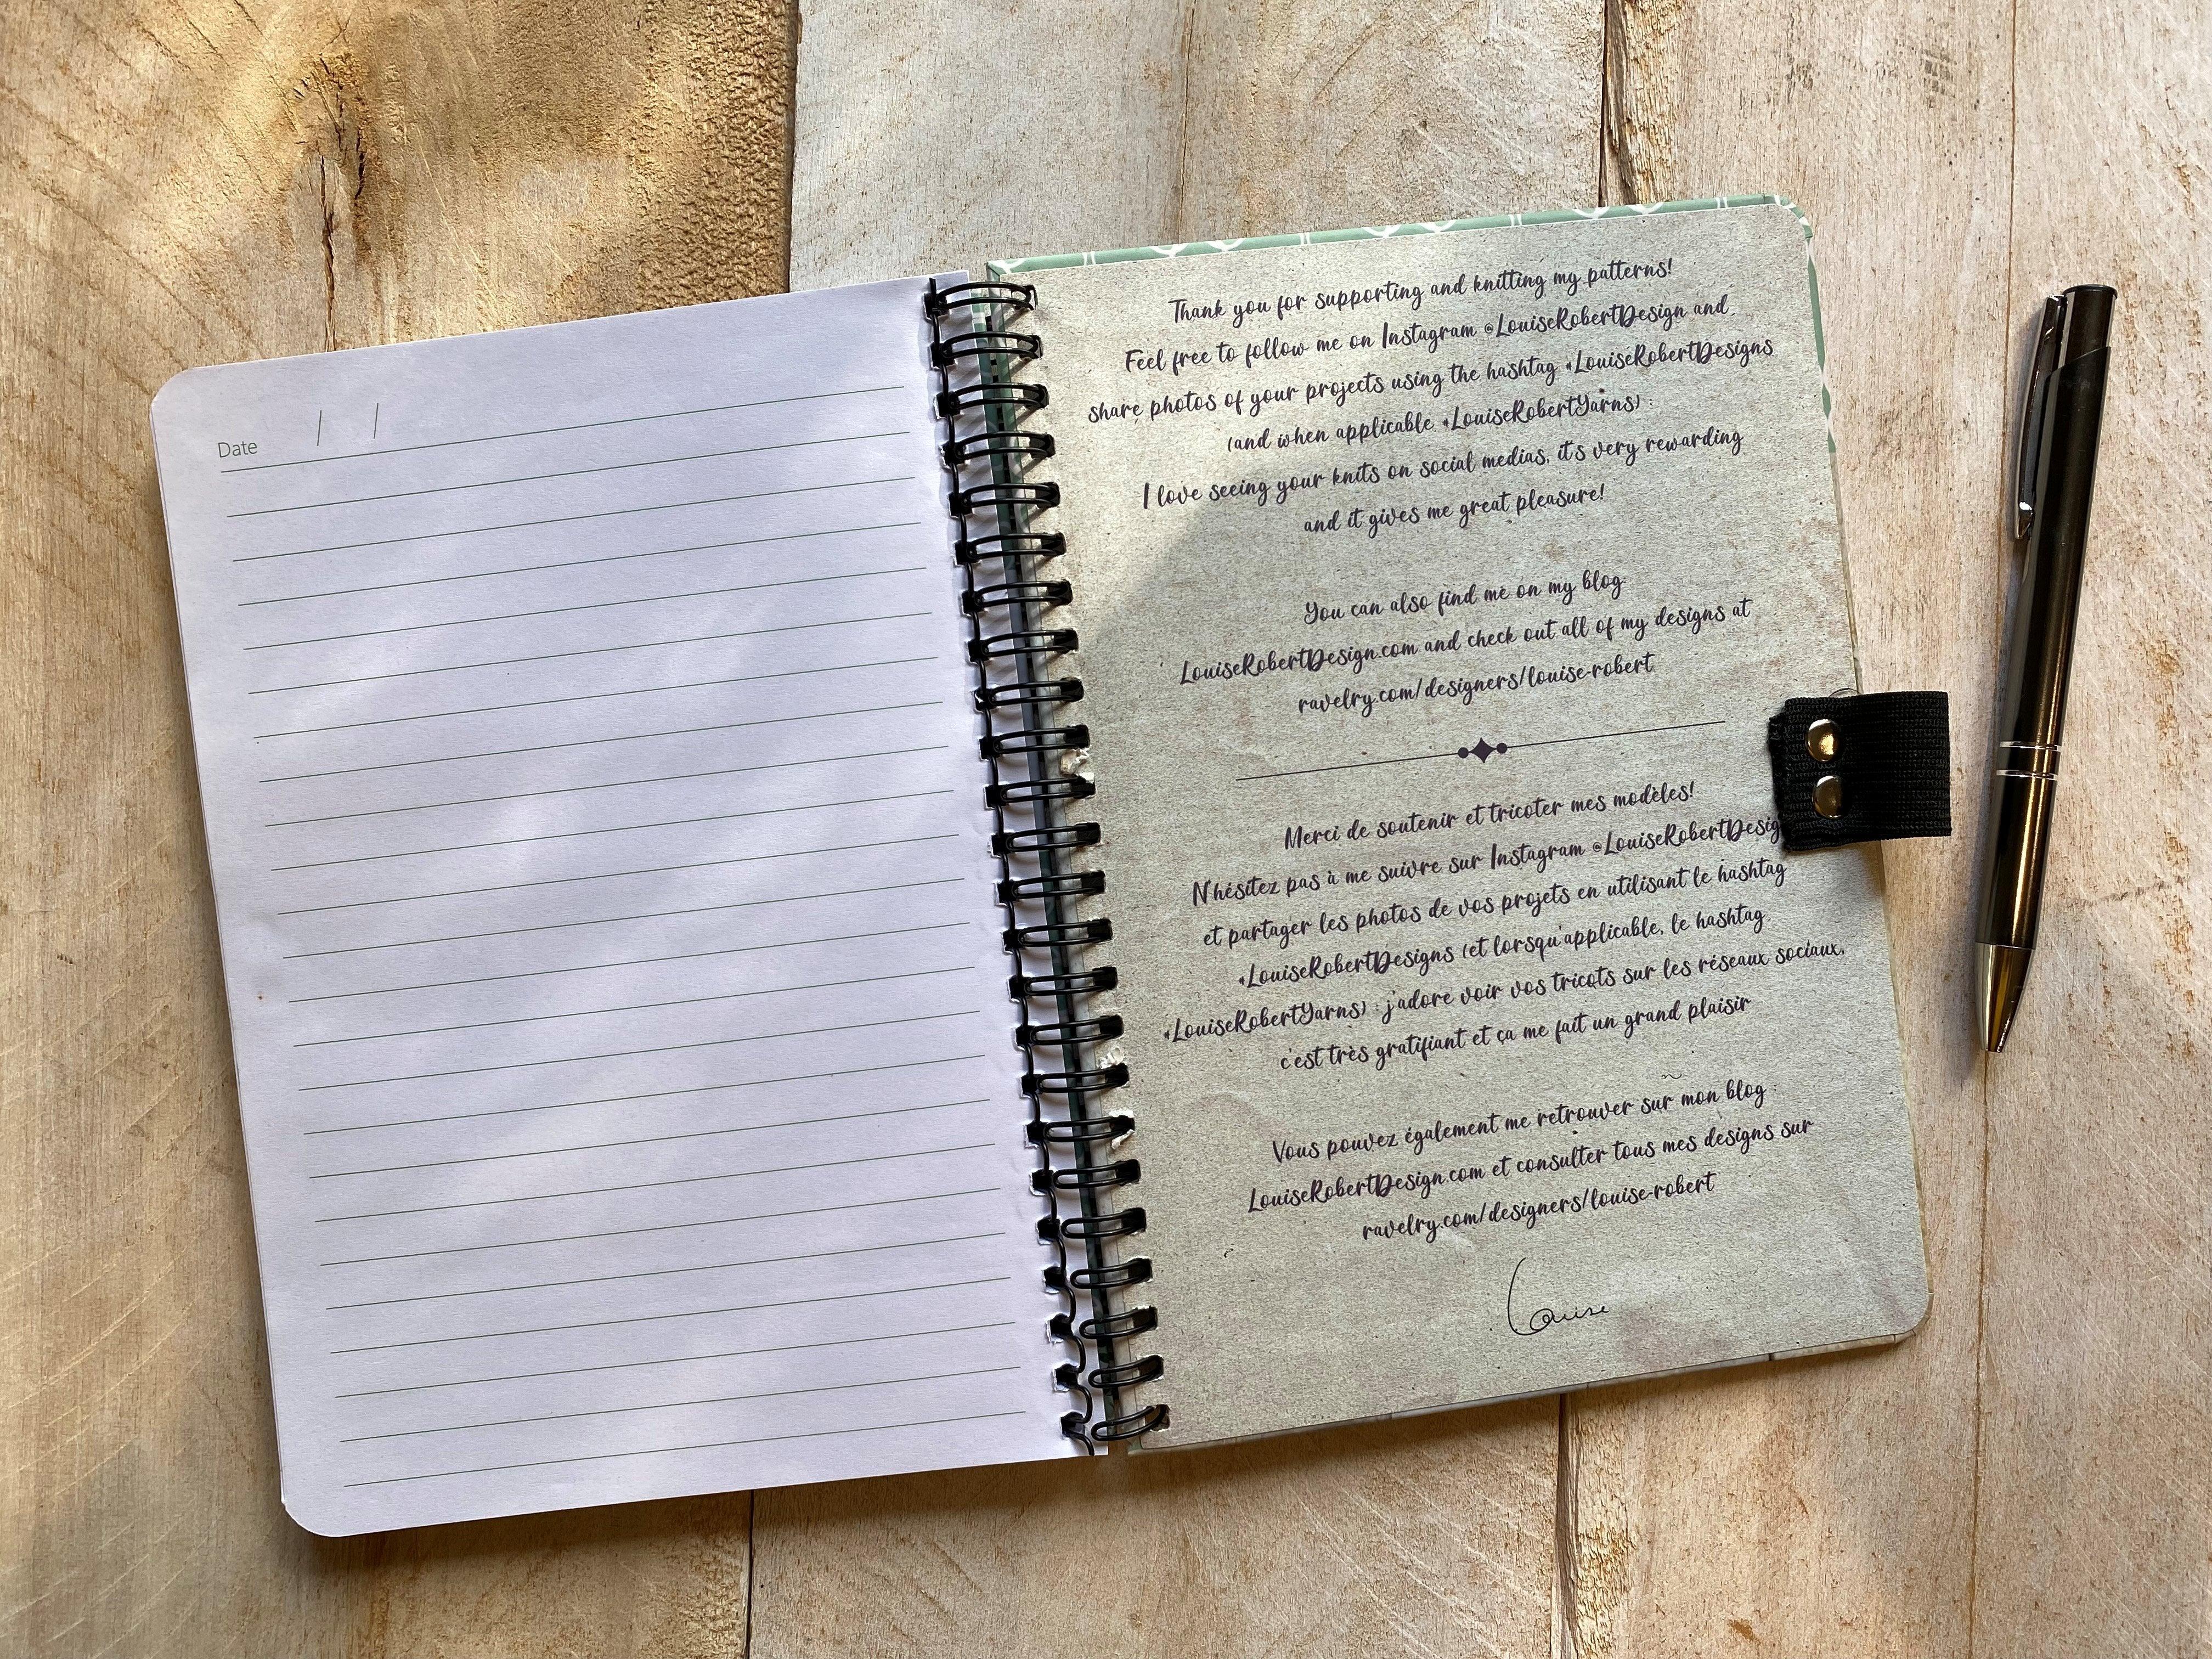 Date / /
Thank you for supporting and knitting my patterns!
Feel free to follow me on Instagram @LouiseRobertDesign and
share photos of your projects using the hashtag #LouiseRobertDesigns
(and when applicable #LouiseRobertYarns) :
I love seeing your knits on social medias, it's very rewarding
and it gives me great pleasure!
You can also find me on my blog:
LouiseRobertDesign.com and check out all of my designs at
ravelry.com/designers/louise-robert
Merci de soutenir et tricoter mes modèles!
N'hésitez pas à me suivre sur Instagram @LouiseRobertDesig
et partager les photos de vos projets en utilisant le hashtag
#LouiseRobertDesigns (et lorsqu'applicable, le hashtag
#LouiseRobertYarns) : j'adore voir vos tricots sur les réseaux sociaux,
c'est très gratifiant et ça me fait un grand plaisir
Vous pouvez également me retrouver sur mon blog :
LouiseRobertDesign.com et consulter tous mes designs sur
ravelry.com/designers/louise-robert
Louise